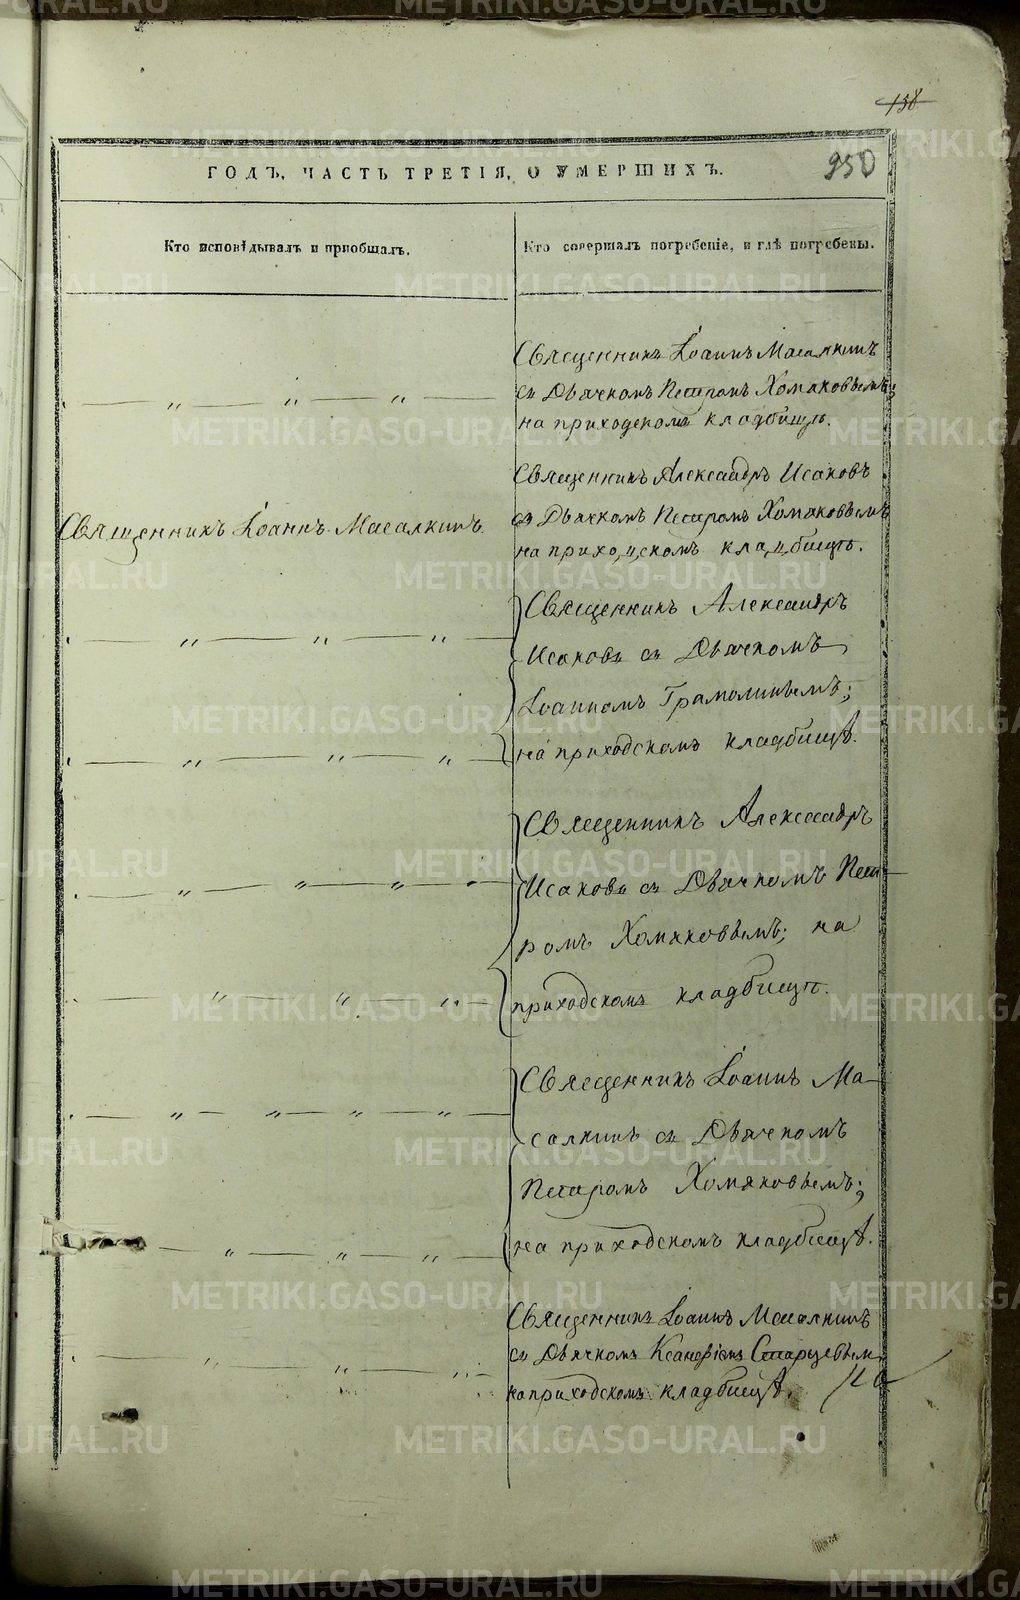 158
950
ГОДЪ, ЧАСТЬ ТРЕТІЯ, О УМЕРШИХЪ.
Кто исповѣдывалъ и пріобщалъ.
Кто совершалъ погребеніе, и гдѣ погребены.
Священникъ Іоаннъ Масалкинъ
съ Дьячкомъ Петромъ Хомяковымъ;
на приходскомъ кладбищѣ.
Священникъ Іоаннъ Масалкинъ.
Священникъ Александръ Исаковъ
съ Дьячкомъ Петромъ Хомяковымъ
на приходскомъ кладбищѣ.
Священникъ Александръ
Исаковъ съ Дьячкомъ
Іоанномъ Грамолинымъ;
на приходскомъ кладбищѣ.
Священникъ Александръ
Исаковъ съ Дьячкомъ Пет-
ромъ Хомяковымъ; на
приходскомъ кладбищѣ.
Священникъ Іоаннъ Ма-
салкинъ съ Дьячкомъ
Петромъ Хомяковымъ;
на приходскомъ кладбищѣ.
Священникъ Іоаннъ Масалкинъ
съ Дьячкомъ Старцевымъ
на приходскомъ кладбищѣ.
METRIKI.GASO-URAL.RU